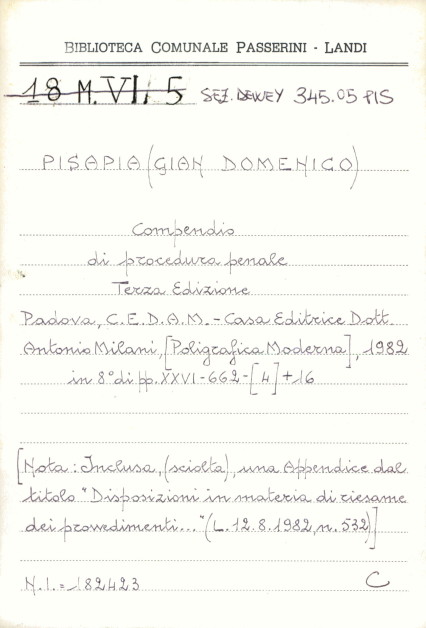 BIBLIOTECA COMUNALE PASSERINI - LANDI
18 M.VI. 5 SEZ. DEWEY 345.05 PIS
PISAPIA (GIAN DOMENICO)
Compendio
di procedura penale
Terza Edizione
Padova, C.E.D.A.M. - Casa Editrice Dott.
Antonio Milani, [Poligrafica Moderna], 1982
in 8° di pp. XXVI-662-[4]+16
[Nota: Inclusa, (sciolta), una Appendice dal
titolo "Disposizioni in materia di riesame
dei provvedimenti..." (L. 12.8.1982, n. 532)]
N.I. = 182423 C